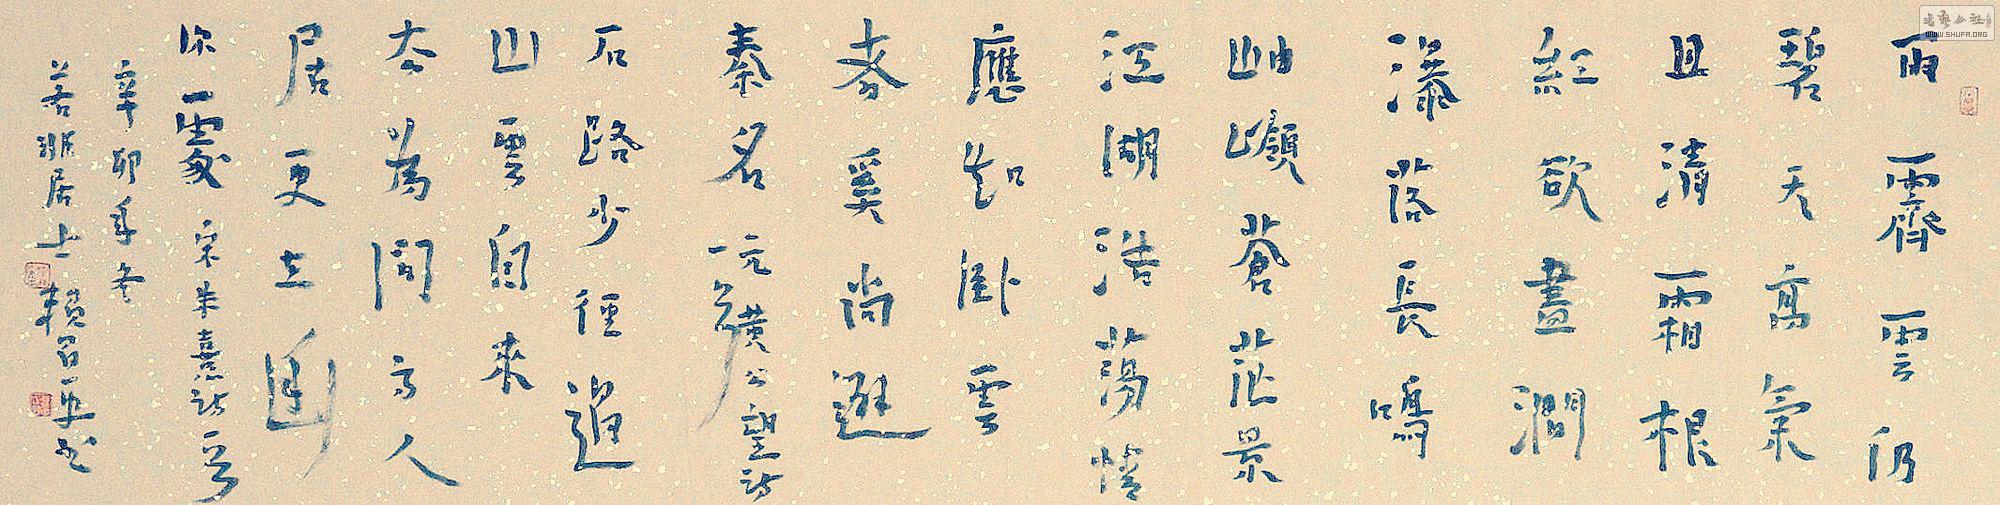 雨霽雲仍
碧天高氣
且清霜根
紅欲盡澗
瀑落長鳴
岫嶺蒼茫景
江湖浩蕩情
應知卧雲
奚尚避
秦名 元黄公望詩
石路少徑
山雲自來
去為問方人
居更在幽
深處 宋朱熹詩
辛卯年冬
若非居士賴
书艺公社
WWW.SHUFA.ORG